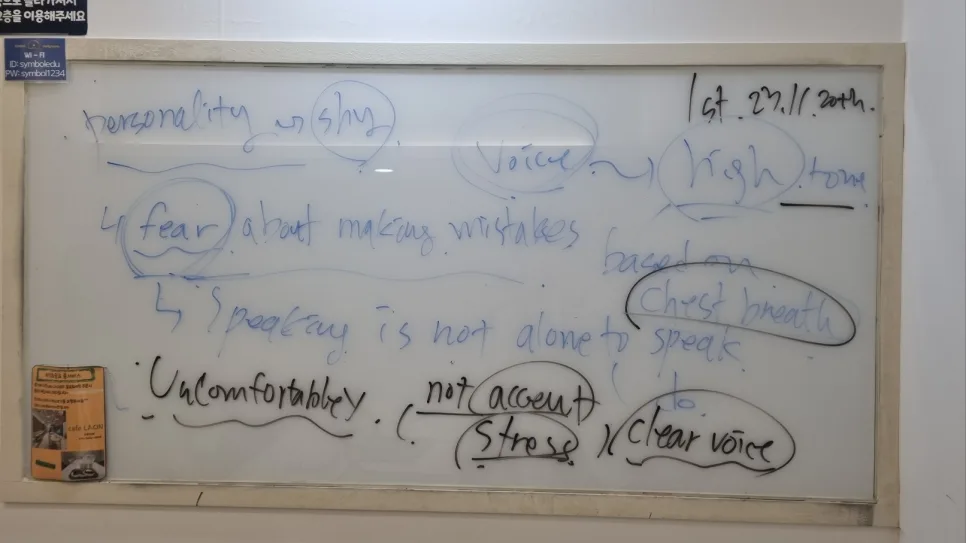 층을 이용해주세요
Wi-Fi
ID: symboledu
PW: symbol1234
1st. 23.11.20th.
personality ~ shy
voice ~ high tone
↳ fear about making mistakes
based on
chest breath
↳ Speaking is not alone to speak
to
Uncomfortabley. (not accent
(stress) (clear voice
cafe LA-ON